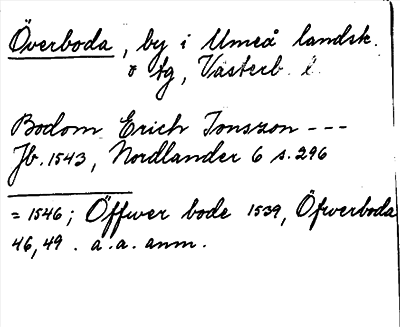 Överboda, by i Umeå landsk.
o tg, Västerb. l.
Bodom Erich Jonszon ---
Jb. 1543, Nordlander 6 s. 296
= 1546; Öffwer bode 1539, Öfwerboda
46, 49. a. a. anm.